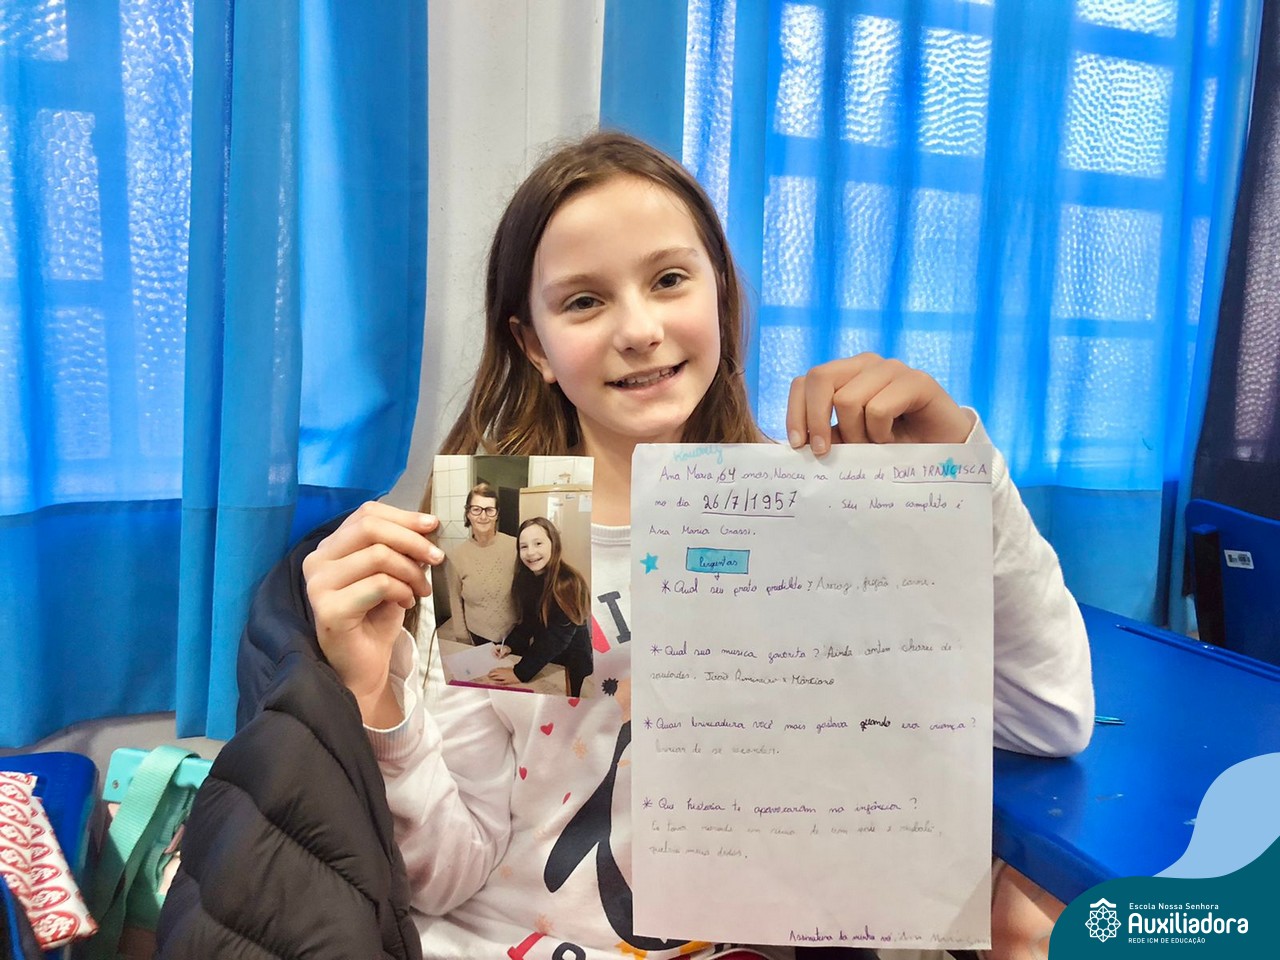 Kimberly
Ana Maria, 64 anos, Nasceu na cidade de DONA FRANCISCA
no dia 26/7/1957 . Seu Nome completo é
Ana Maria Grassi.
Perguntas
* Qual seu prato predileto? Arroz, feijão, carne.
* Qual sua musica favorita? Ainda ontem chorei de
saudades. João Mineiro e Marciano
* Quais brincadeira você mais gostava quando era criança?
brincar de se esconder.
* Que história te apavoraram na infância?
Eu
meus dedos.
Assinatura da minha vó, Ana Maria
Escola Nossa Senhora
Auxiliadora
REDE ICM DE EDUCAÇÃO